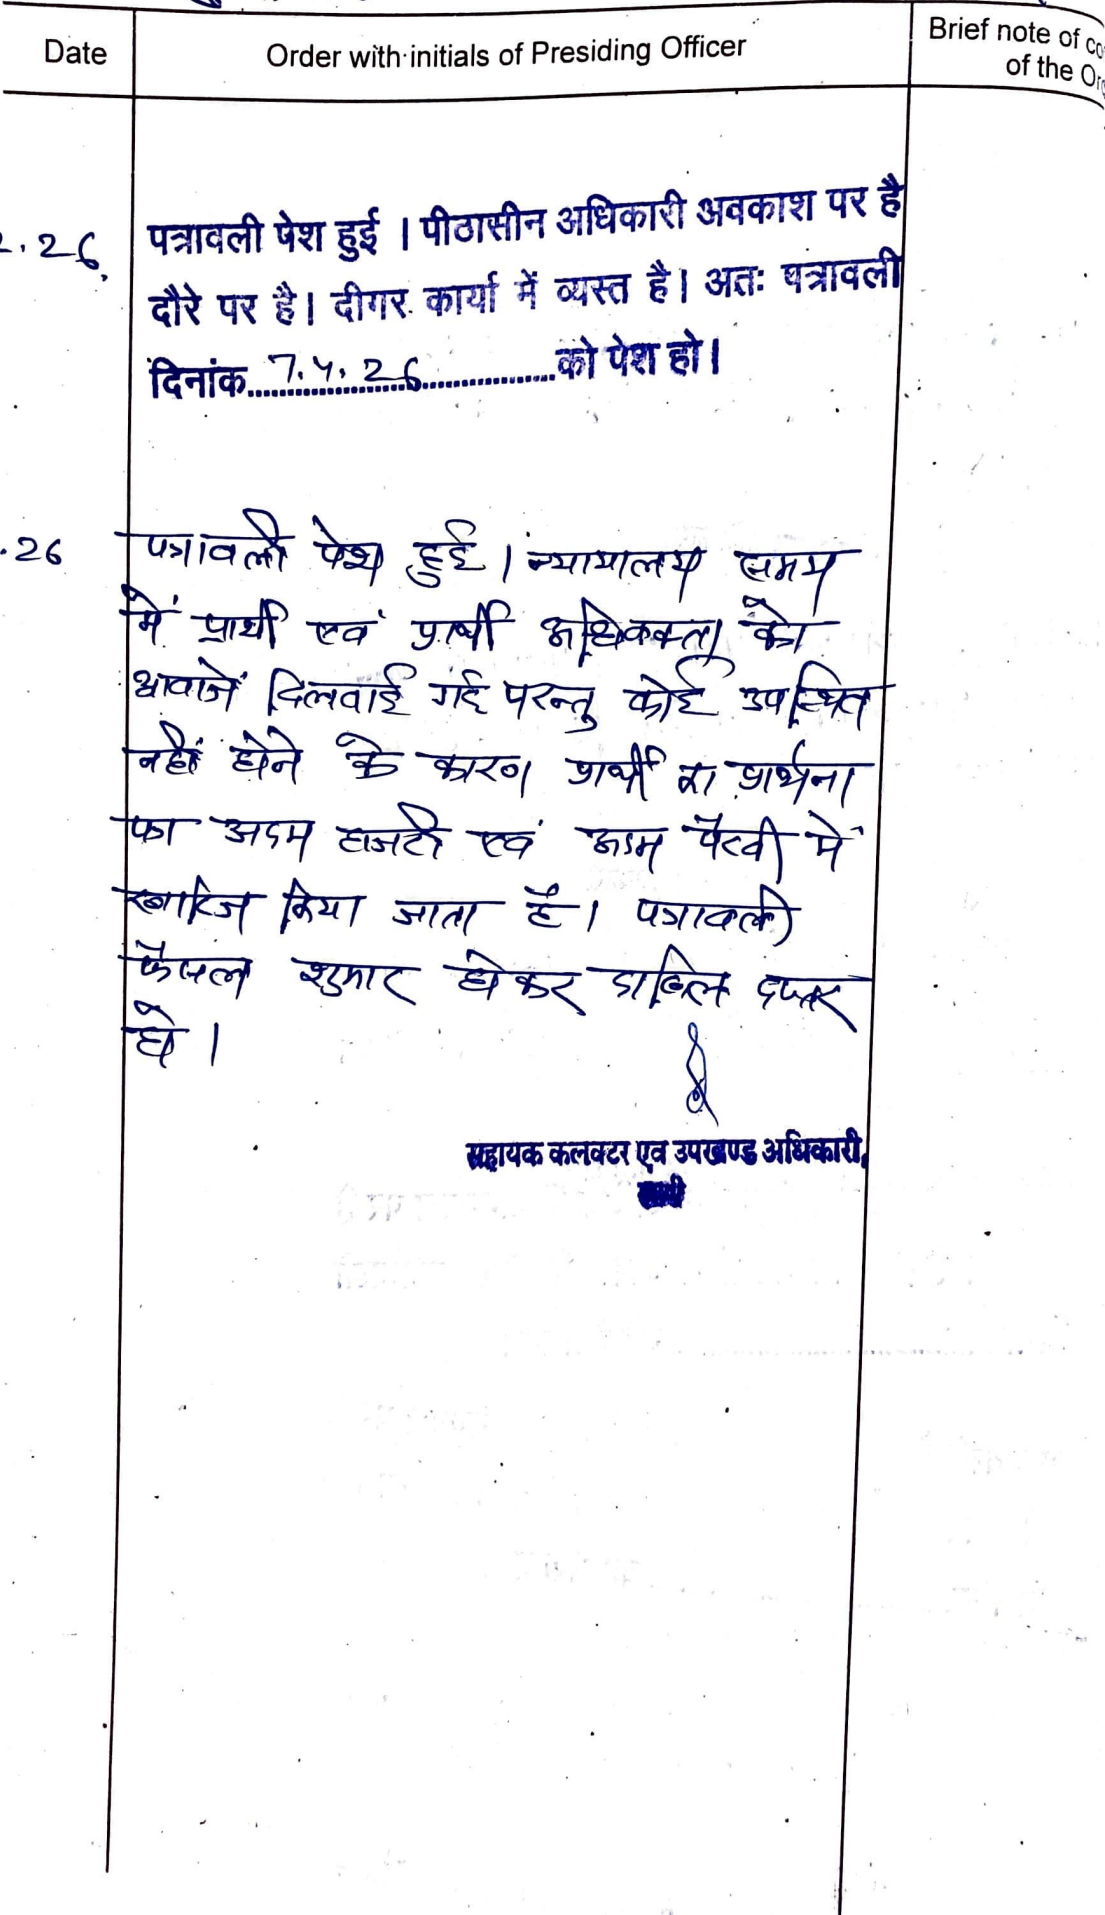 Date
Order with initials of Presiding Officer
Brief note of
of the
.26
पत्रावली पेश हुई । पीठासीन अधिकारी अवकाश पर है
दौरे पर है। दीगर कार्यो में व्यस्त है। अतः पत्रावली
दिनांक 7.4.26 को पेश हो।
.26
पत्रावली पेश हुई । न्यायालय समय
में प्रार्थी एवं प्रार्थी अधिवक्ता को
आवाजें दिलवाई गई परन्तु कोई उपस्थित
नहीं होने के कारण प्रार्थी का प्रार्थना
अदम हाजरी एवं अदम पैरवी में
खारिज किया जाता है। पत्रावली
फैसल शुमार होकर दाखिल दफ्तर
हो ।
सहायक कलक्टर एव उपखण्ड अधिकारी,